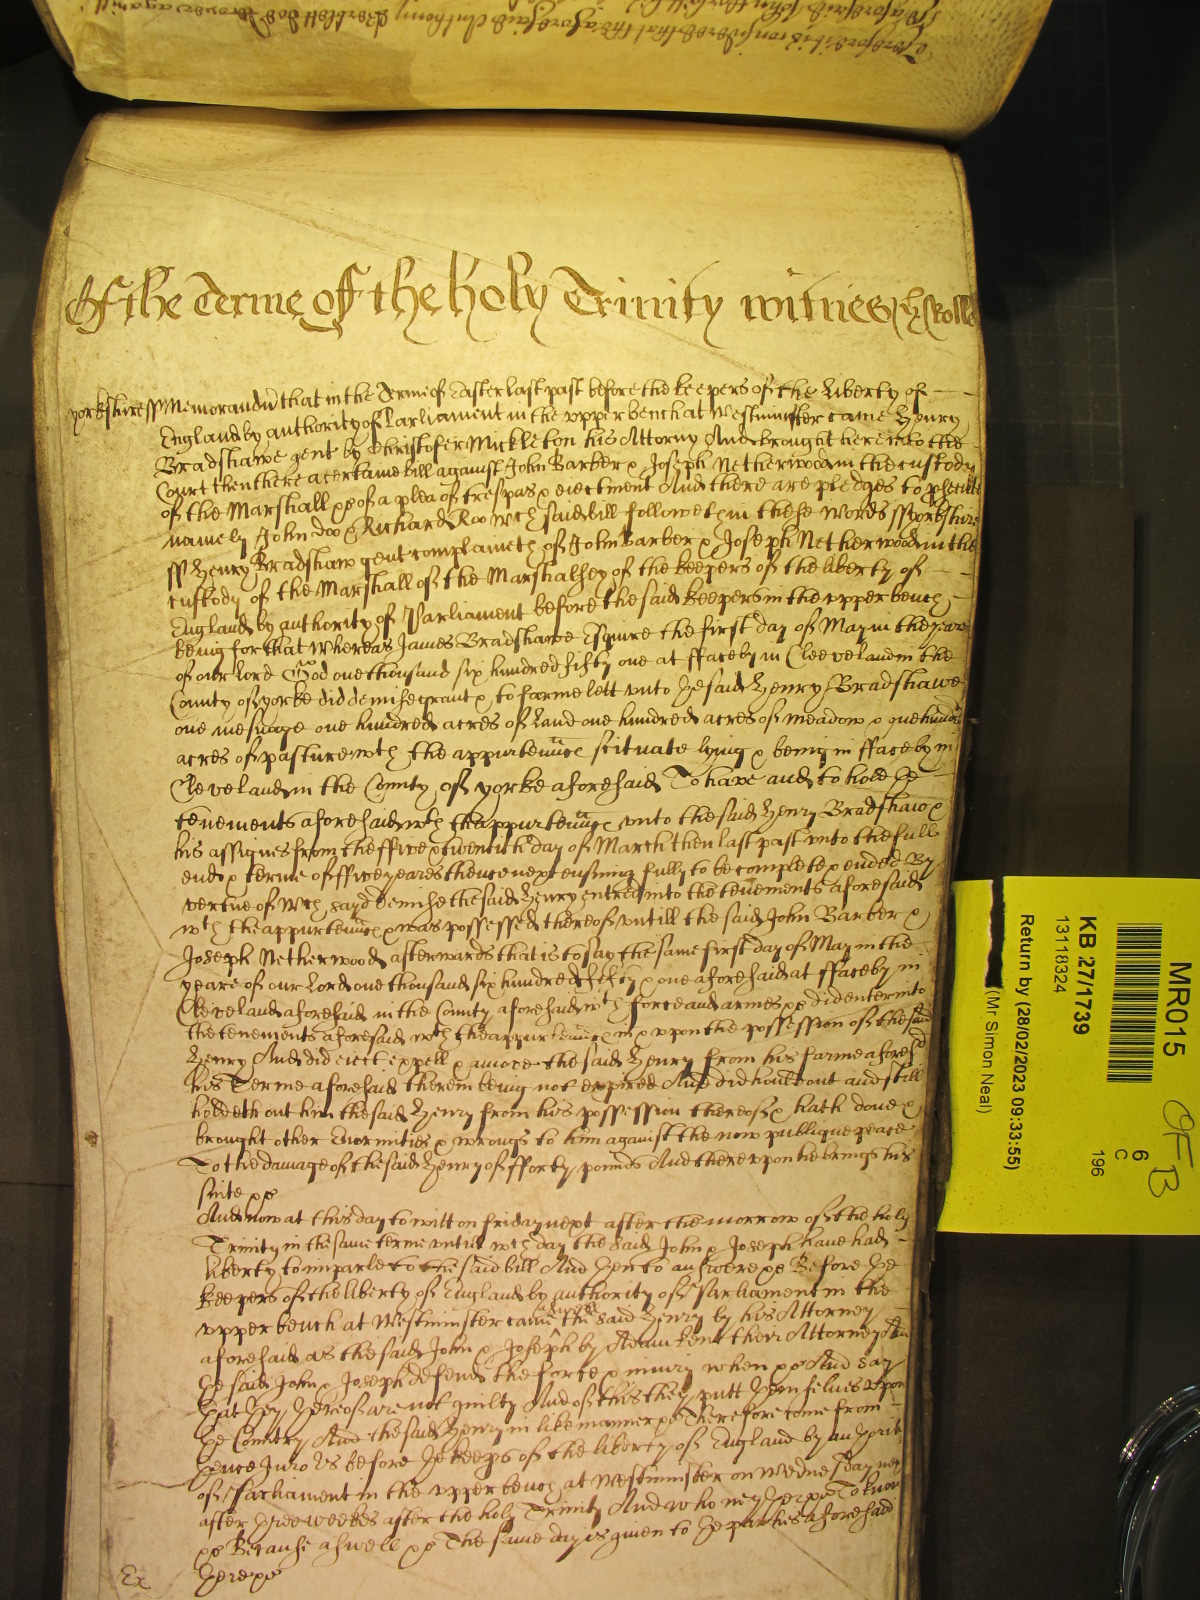 Of the Terme of the holy Trinity witnes H Rolle
yorkshire ss Memorandu that in the Terme of Easter last past before the keepers of the Liberty of
England by authority of Parliament in the upper bench at Westminster came Henry
Bradshawe gent by Christofer Mickleton his Attorny And brought here into the
Court then there a certaine bill against John Barber & Joseph Netherwood in the custody
of the Marshall &c of a plea of trespas & eiectment And there are pledges to psecute
namely John doo & Richard Roo wch said bill followeth in these words ss yorkshire
ss Henry Bradshaw gent complaineth of John Barber & Joseph Netherwood in the
custody of the Marshall of the Marshalsey of the keepers of the liberty of
England by authority of Parliament before the said keepers in the upper bench
being for that whereas James Bradshawe Esquire the first day of May in the yeare
of our Lord God one thousand six hundred fifty one at ffaceby in Cleeveland in the
County of yorke did demise grant & to farme lett unto ye said Henry Bradshawe
one mesuage one hundred acres of Land one hundred acres of meadow & one hundred
acres of pasture wth the appurtennce scituate lying & being in ffaceby in
Cleveland in the County of yorke aforesaid To have and to hold ye
tenements aforesaid wth thappurtennce unto the said Henry Bradshaw &
his assignes from the ffive & twentith day of March then last past unto the full
end & terme of ffive yeares thence next ensuing fully to be complete & ended By
vertue of wch sayd demise the said Henry entred into the tenements aforesaid
wth the appurtennce & was possessed thereof untill the said John Barber &
Joseph Netherwood afterwards that is to say the same first day of May in the
yeare of our Lord one thousand six hundred fifty & one aforesaid at ffaceby in
Cleveland aforesaid in the County aforesaid wth force and armes &c did enter into
the tenements aforesaid wth thappurtennce in & upon the possession of the said
Henry And did eiect expell & amove the said Henry from his farme aforesd
his Terme aforesaid therein being not expired And did hould out and still
holdeth out him the said Henry from his possession thereof & hath done &
brought other Enormities & wrongs to him against the now publique peace
To the damage of the said Henry of fforty pounds And thereupon he brings his
suite &c
And now at this day to witt on friday next after the morrow of the holy
Trinity in the same terme untill wch day the said John & Joseph have had
liberty to imparle to the said bill And yen to answere &c Before ye
keepers of the liberty of England by authority of Parliament in the
upper bench at Westminster came aswell the said Henry by his Attorney
aforesaid as the said John & Joseph by Adam Kent their Attorney And
ye said John & Joseph defends the force & iniury when &c And say
yat yey yereof are not guilty And of this they putt yemselves upon
ye Country And the said Henry in like manner &c Therefore come from
yence Juro Us before ye keeps of the liberty of England by authority
of Parliament in the upper bench at Westminster on Wednesday next
after yree weekes after the holy Trinity And who ney yer &c To know
&c Because aswell &c The same day is given to ye parties aforesaid
yere &c
Ex
MR015
KB 27/1739
13118324
Return by (28/02/2023 09:33:55)
(Mr Simon Neal)
6
C
196